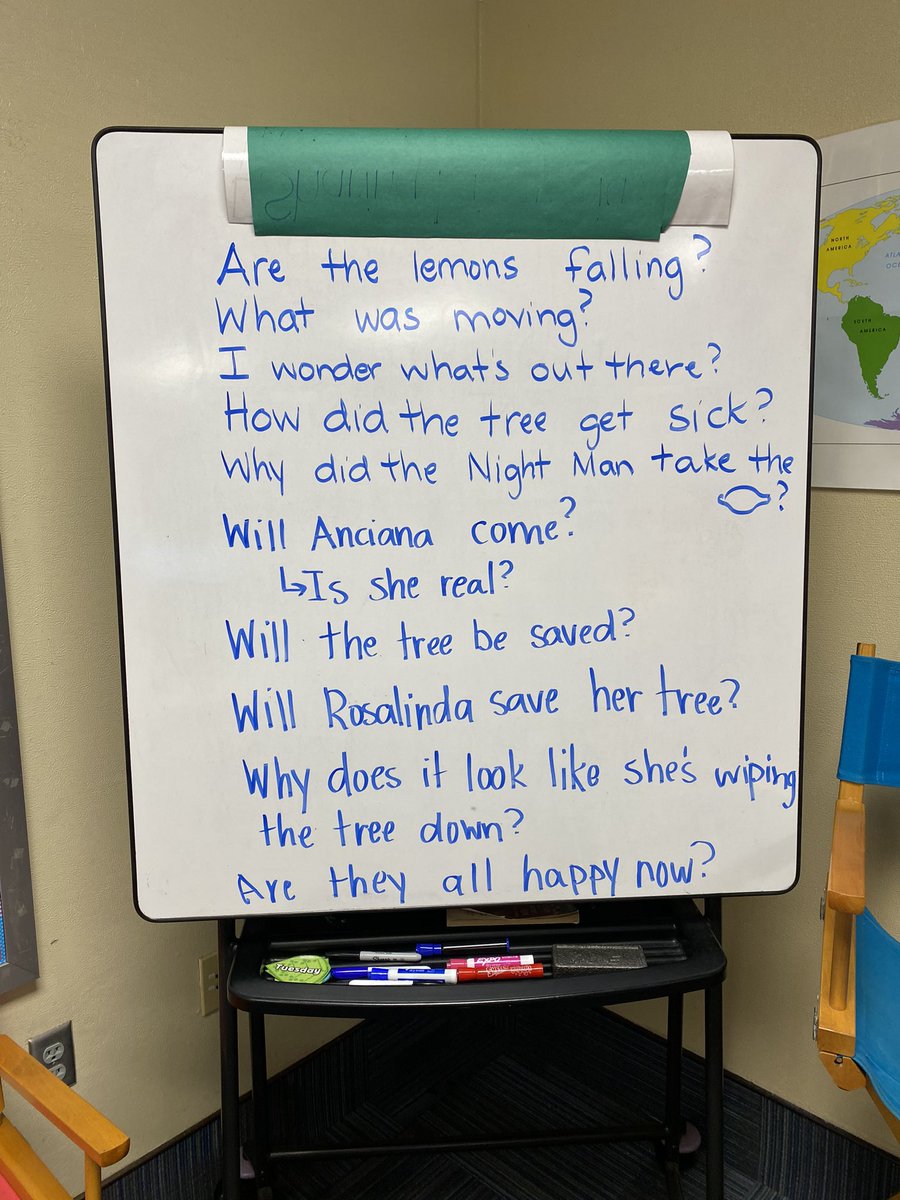 Are the lemons falling?
What was moving?
I wonder what's out there?
How did the tree get sick?
Why did the Night Man take the
?
Will Anciana come?
↳Is she real?
Will the tree be saved?
Will Rosalinda save her tree?
Why does it look like she's wiping
the tree down?
Are they all happy now?
NORTH
AMERICA
SOUTH
AMERICA
Tuesday
EXPO